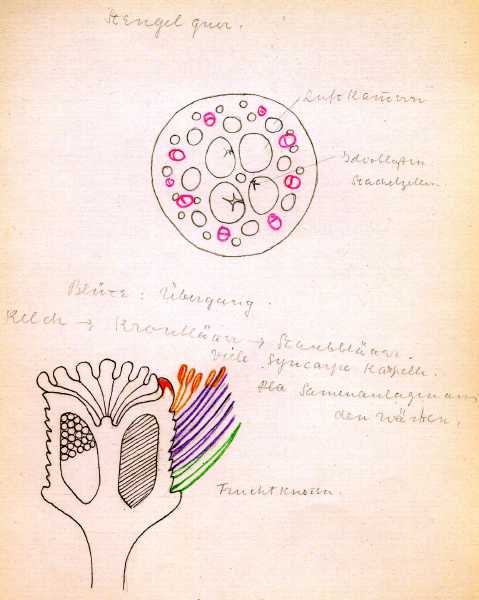 Stengel quer.
Luftkammern
Idioblasten
Stachelzellen
Blüte: Übergang.
Kelch → Kronblätter → Staubblätter.
Viele syncarpe Karpelle.
Samenanlagen an
den Wänden.
Fruchtknoten.